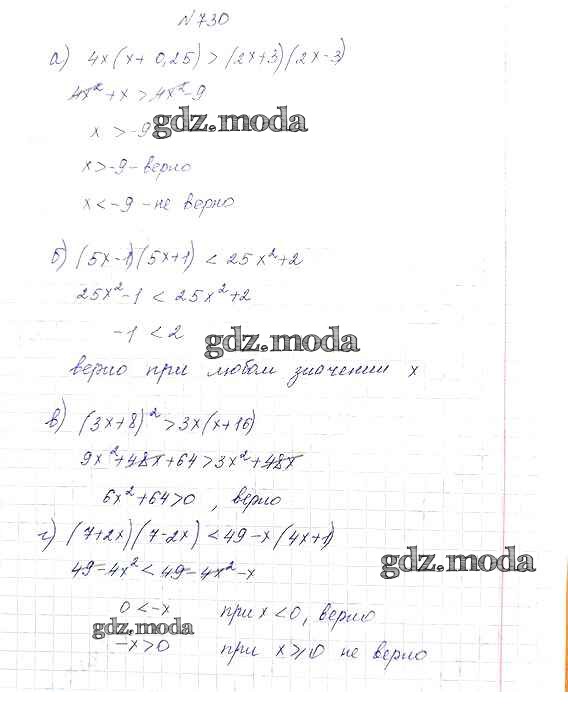 N 730
а) 4x(x+0,25)>(2x+3)(2x-3)
4x²+x>4x²-9
x>-9
gdz.moda
x>-9-верно
x<-9-не верно
б) (5x-1)(5x+1)<25x²+2
25x²-1<25x²+2
-1<2
gdz.moda
верно при любом значении x
в) (3x+8)²>3x(x+16)
9x²+48x+64>3x²+48x
6x²+64>0, верно
г) (7+2x)(7-2x)<49-x(4x+1)
gdz.moda
49-4x²<49-4x²-x
0<-x при x<0, верно
gdz.moda
-x>0 при x⩾0 не верно